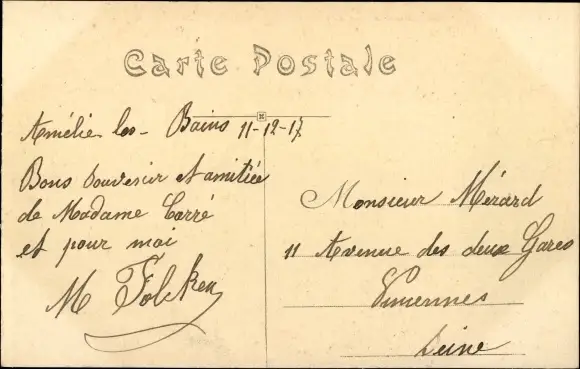 Carte Postale
Amélie les-Bains 11-12-17
Bons souvenir et amitiée
de Madame Carré
et pour moi
M Folcken
Monsieur Mérard
11 Avenue des deux Gares
Vincennes
Seine